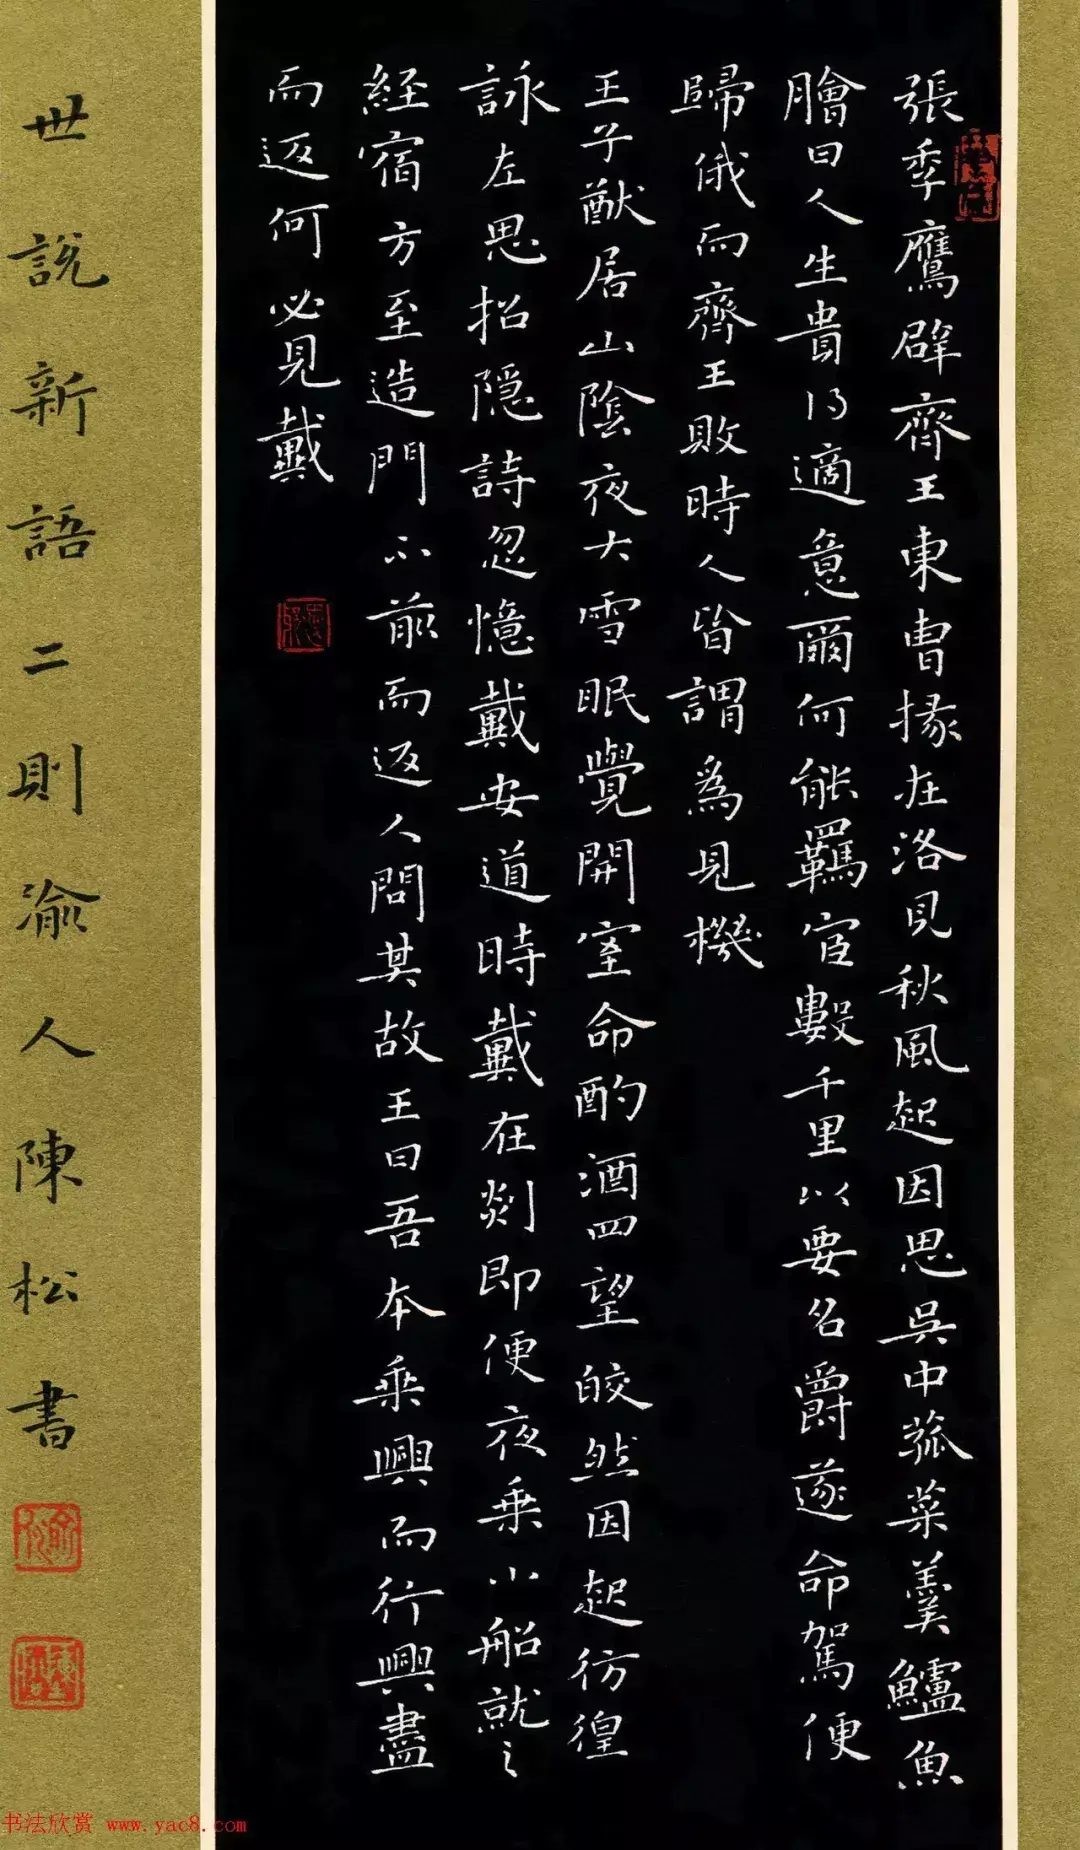 張季鷹辟齊王東曹掾在洛見秋風起因思吳中菰菜羹鱸魚
膾曰人生貴得適意爾何能羈宦數千里以要名爵遂命駕便
歸俄而齊王敗時人皆謂為見機
王子猷居山陰夜大雪眠覺開室命酌酒四望皎然因起彷徨
詠左思招隱詩忽憶戴安道時戴在剡即便夜乗小船就之
経宿方至造門不前而返人問其故王曰吾本乗興而行興盡
而返何必見戴
世說新語二則渝人陳松書
书法欣赏 www.yac8.com